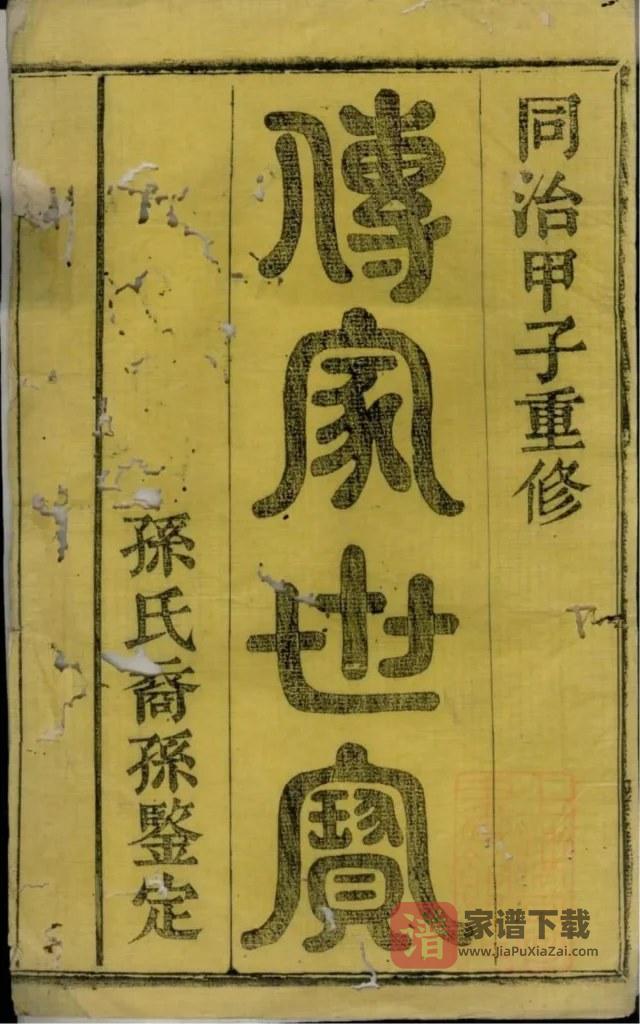 同治甲子重修
傳家世寶
孫氏裔孫鑒定
谱
家谱下载
www.JiaPuXiaZai.com